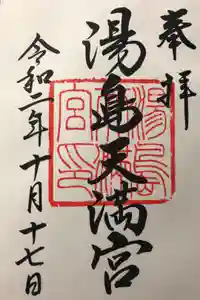 奉拝
湯島天満宮
令和二年十月十七日